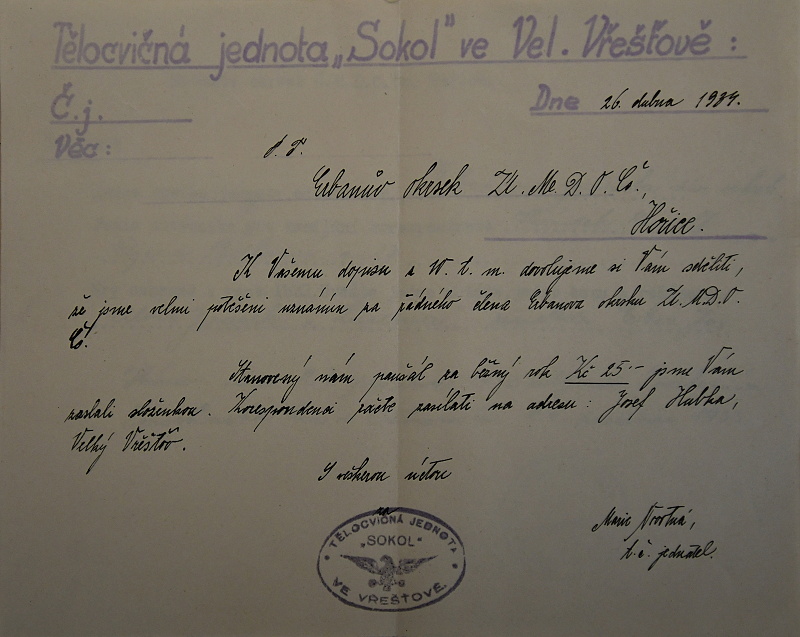 Tělocvičná jednota „Sokol" ve Vel. Vřešťově :
Č.j.
Dne 26. dubna 1934.
Věc:
P. T.
Erbanův okrsek Ú. M. D. O. Č.,
Hořice.
K Vašemu dopisu z 10. t. m. dovolujeme si Vám sděliti,
že jsme velmi potěšeni uznáním za řádného člena Erbanova okrsku Ú. M. D. O.
Č.
Stanovený nám paušál za běžný rok Kč 25·- jsme Vám
zaslali složenkou. Korespondenci račte zasílati na adresu: Josef Hubka,
Velký Vřešťov.
S veškerou úctou
za
Marie
t. č. jednatel.
TĚLOCVIČNÁ JEDNOTA
„SOKOL"
VE VŘEŠŤOVĚ.